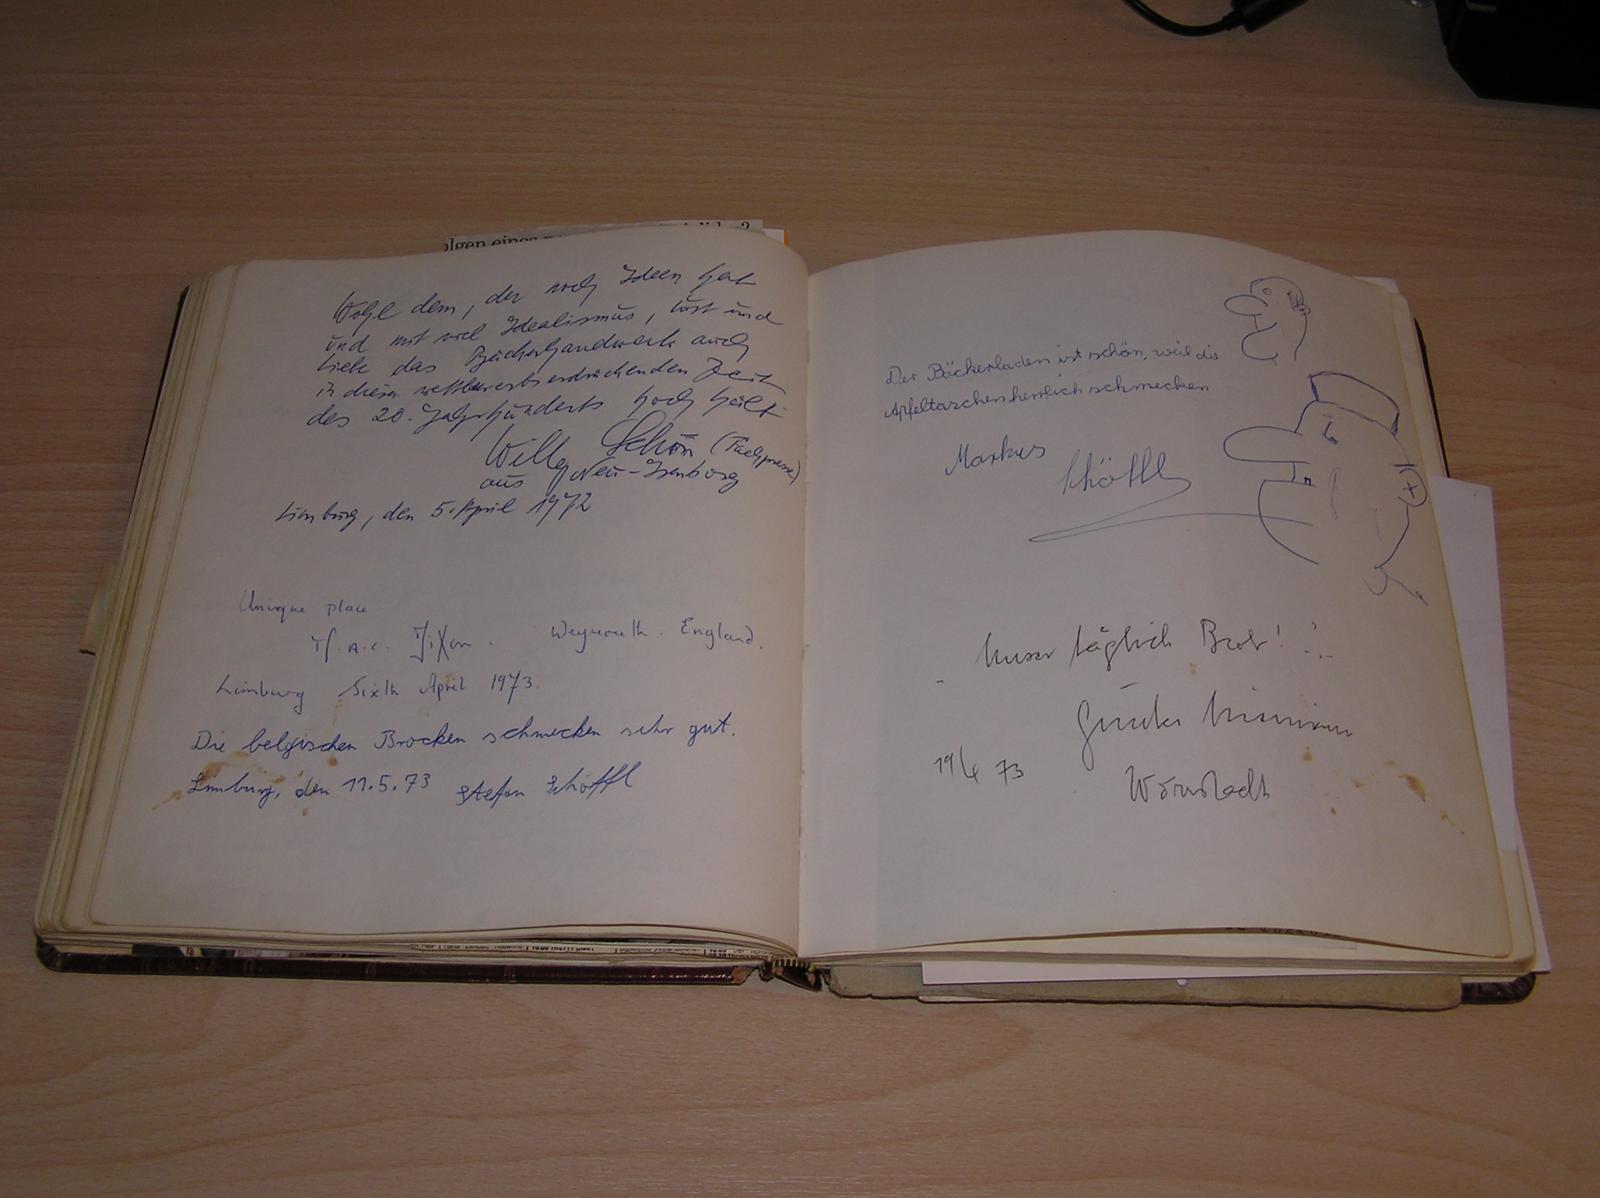 Wohl dem, der noch Ideen hat
und mit viel Idealismus, Lust und
Liebe das Bäckerhandwerk auch
in dieser wettbewerbserdrückenden Zeit
des 20. Jahrhunderts hoch hält
Willy Schön (Fachpresse)
aus Neu-Isenburg
Limburg, den 5. April 1972
Unique place
A.C. Dixon. Weymouth. England.
Limburg Sixth April 1973.
Die belgischen Brocken schmecken sehr gut.
Limburg, den 11.5.73 Stefan Schöffl
Der Bäckerladen ist schön, weil die
Apfeltaschen herrlich schmecken
Markus Schöffl
Unser täglich Brot!
19 4 73